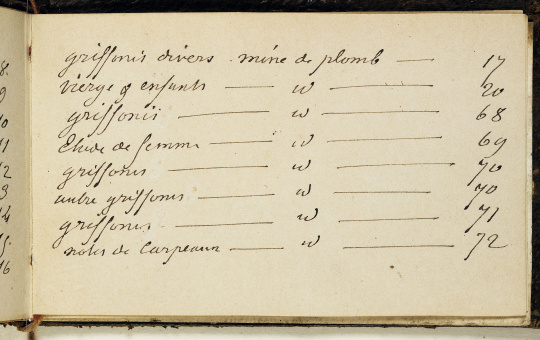 griffonis divers mine de plomb — 17
vierge & enfants — id — 20
griffonis — id — 68
Etude de femme — id — 69
griffonis — id — 70
autre griffonis — id — 70
griffonis — id — 71
notes de Carpeaux — id — 72
8.
9
10
11
12
13
14
15.
16